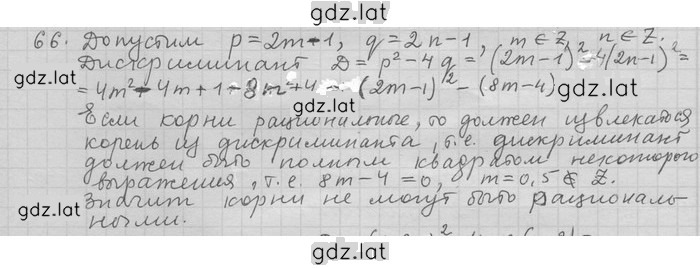 gdz.lat
66. Допустим p=2m-1, q=2n-1, m∈Z, n∈Z.
Дискриминант D=p²-4q=(2m-1)²-4(2n-1)²=
=4m²-4m+1-8m²+4 (2m-1)²-(8m-4)
gdz.lat gdz.lat
Если корни рациональные, то должен извлекатся
корень из дискриминанта, т.е. дискриминант
gdz.lat
должен быть полным квадратом некоторого
выражения, т.е. 8m-4=0, m=0,5 ∉ Z.
gdz.lat gdz.lat
Значит корни не могут быть рациональ-
ными.
gdz.lat